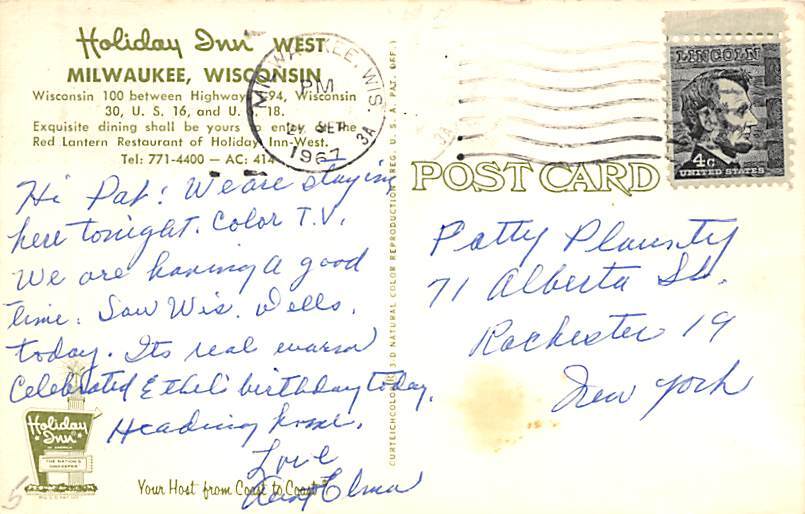 Holiday Inn WEST
MILWAUKEE, WISCONSIN
Wisconsin 100 between Highway 94, Wisconsin
30, U. S. 16, and U. S. 18.
Exquisite dining shall be yours to enjoy at the
Red Lantern Restaurant of Holiday Inn-West.
Tel: 771-4400 — AC: 414
MILWAUKEE, WIS.
PM
SEP
1967
3A
LINCOLN
4c
UNITED STATES
POST CARD
Hi Pat! We are staying
here tonight. Color T.V.
We are having a good
time. Saw Wis. Dells.
today. Its real warm
Celebrated Ethel's birthday today.
Heading home.
Love
Aunt Elma
Patty
71 Alberta St.
Rochester 19
New York
CURTEICHCOLOR 3-D NATURAL COLOR REPRODUCTION (REG. U. S. A. PAT. OFF.)
Holiday Inn
OF AMERICA
THE NATION'S
INNKEEPER
Your Host from Coast to Coast
5